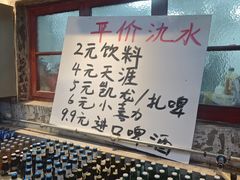 平价氿水
2元饮料
4元天涯
5元凯龙/扎啤
6元小喜力
9.9元进口啤酒